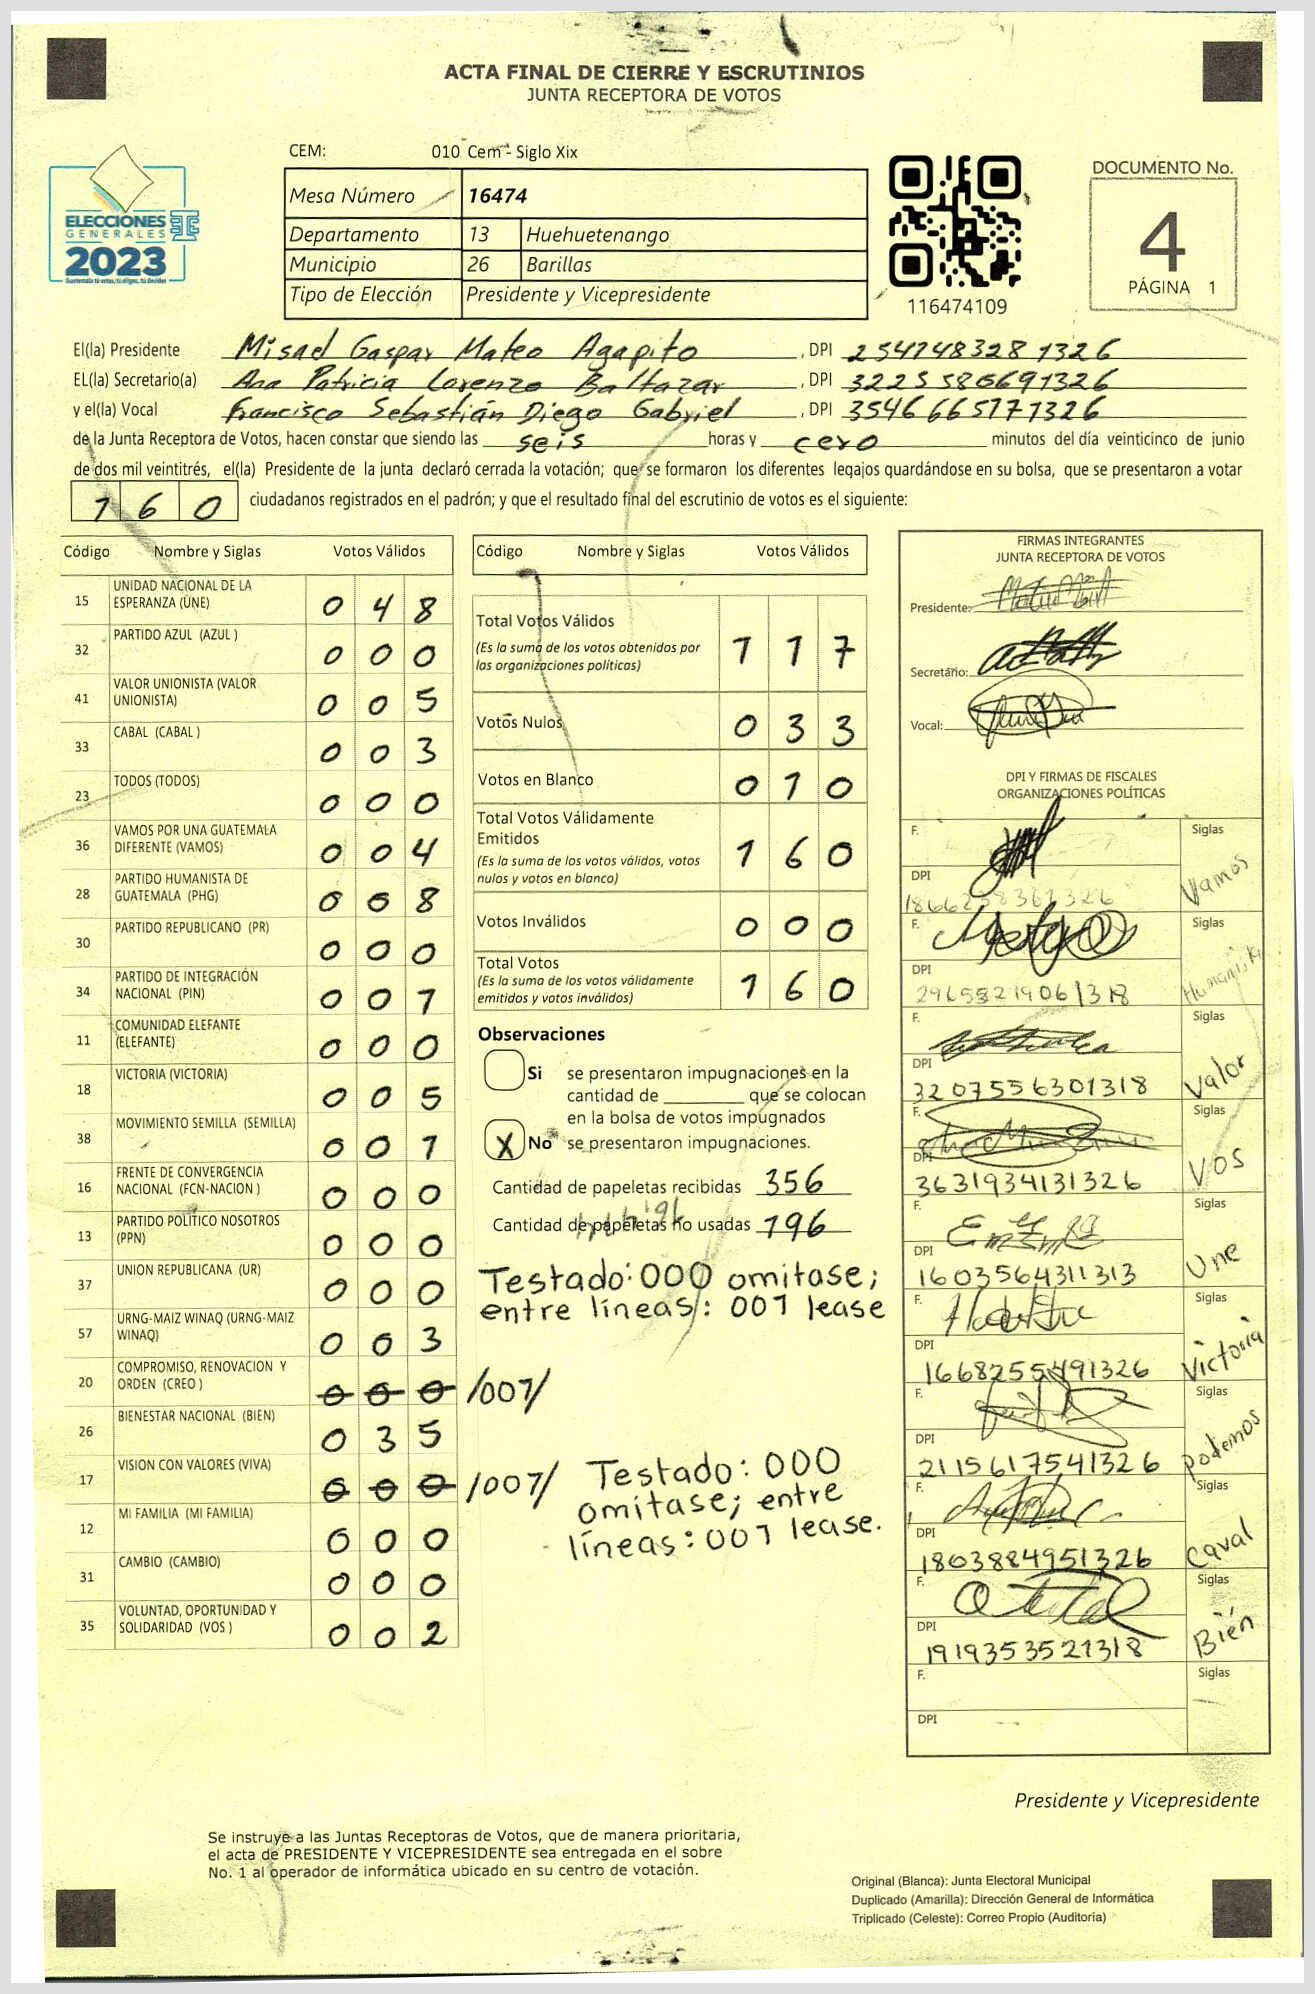 ACTA FINAL DE CIERRE Y ESCRUTINIOS
JUNTA RECEPTORA DE VOTOS
ELECCIONES
GENERALES
2023
CEM: 010 Cem - Siglo Xix
Mesa Número 16474
Departamento 13 Huehuetenango
Municipio 26 Barillas
Tipo de Elección Presidente y Vicepresidente
116474109
DOCUMENTO No.
4
PÁGINA 1
El(la) Presidente Misael Gaspar Mateo Agapito, DPI
EL(la) Secretario(a) Ana Patricia Lorenzo Baltazar, DPI
y el(la) Vocal Francisco Sebastián Diego Gabriel, DPI
de la Junta Receptora de Votos, hacen constar que siendo las seis horas y cero minutos del día veinticinco de junio
de dos mil veintitrés, el(la) Presidente de la junta declaró cerrada la votación; que se formaron los diferentes legajos guardándose en su bolsa, que se presentaron a votar
160 ciudadanos registrados en el padrón; y que el resultado final del escrutinio de votos es el siguiente:
Código Nombre y Siglas Votos Válidos
15 UNIDAD NACIONAL DE LA ESPERANZA (UNE) 0 4 8
32 PARTIDO AZUL (AZUL ) 0 0 0
41 VALOR UNIONISTA (VALOR UNIONISTA) 0 0 5
33 CABAL (CABAL ) 0 0 3
23 TODOS (TODOS) 0 0 0
36 VAMOS POR UNA GUATEMALA DIFERENTE (VAMOS) 0 0 4
28 PARTIDO HUMANISTA DE GUATEMALA (PHG) 0 0 8
30 PARTIDO REPUBLICANO (PR) 0 0 0
34 PARTIDO DE INTEGRACIÓN NACIONAL (PIN) 0 0 1
11 COMUNIDAD ELEFANTE (ELEFANTE) 0 0 0
18 VICTORIA (VICTORIA) 0 0 5
38 MOVIMIENTO SEMILLA (SEMILLA) 0 0 1
16 FRENTE DE CONVERGENCIA NACIONAL (FCN-NACION ) 0 0 0
13 PARTIDO POLÍTICO NOSOTROS (PPN) 0 0 0
37 UNION REPUBLICANA (UR) 0 0 0
57 URNG-MAIZ WINAQ (URNG-MAIZ WINAQ) 0 0 3
20 COMPROMISO, RENOVACION Y ORDEN (CREO ) 0 0 0 /001/
26 BIENESTAR NACIONAL (BIEN) 0 3 5
17 VISION CON VALORES (VIVA) 0 0 0 /001/
12 MI FAMILIA (MI FAMILIA) 0 0 0
31 CAMBIO (CAMBIO) 0 0 0
35 VOLUNTAD, OPORTUNIDAD Y SOLIDARIDAD (VOS ) 0 0 2
Código Nombre y Siglas Votos Válidos
Total Votos Válidos 1 1 7
(Es la suma de los votos obtenidos por
las organizaciones políticas)
Votos Nulos 0 3 3
Votos en Blanco 0 1 0
Total Votos Válidamente
Emitidos 1 6 0
(Es la suma de los votos válidos, votos
nulos y votos en blanco)
Votos Inválidos 0 0 0
Total Votos 1 6 0
(Es la suma de los votos válidamente
emitidos y votos inválidos)
Observaciones
Si se presentaron impugnaciones en la
cantidad de ________ que se colocan
en la bolsa de votos impugnados
X No se presentaron impugnaciones.
Cantidad de papeletas recibidas 356
Cantidad de papeletas no usadas 196
Testado: 000 omitase;
entre líneas: 001 lease
Testado: 000
omitase; entre
líneas: 001 lease.
FIRMAS INTEGRANTES
JUNTA RECEPTORA DE VOTOS
Presidente:
Secretario:
Vocal:
DPI Y FIRMAS DE FISCALES
ORGANIZACIONES POLÍTICAS
F. Siglas
DPI Vamos
F. Siglas
DPI Humanista
F. Siglas
DPI 3207556301318 Valor
F. Siglas
DPI 3631934131326 VOS
F. Siglas
DPI 1603564311313 Une
F. Siglas
DPI 1668255491326 Victoria
F. Siglas
DPI 2115617541326 podemos
F. Siglas
DPI 1803884951326 Caval
F. Siglas
DPI 1919353521318 Bién
F. Siglas
DPI
Presidente y Vicepresidente
Se instruye a las Juntas Receptoras de Votos, que de manera prioritaria,
el acta de PRESIDENTE Y VICEPRESIDENTE sea entregada en el sobre
No. 1 al operador de informática ubicado en su centro de votación.
Original (Blanca): Junta Electoral Municipal
Duplicado (Amarilla): Dirección General de Informática
Triplicado (Celeste): Correo Propio (Auditoría)